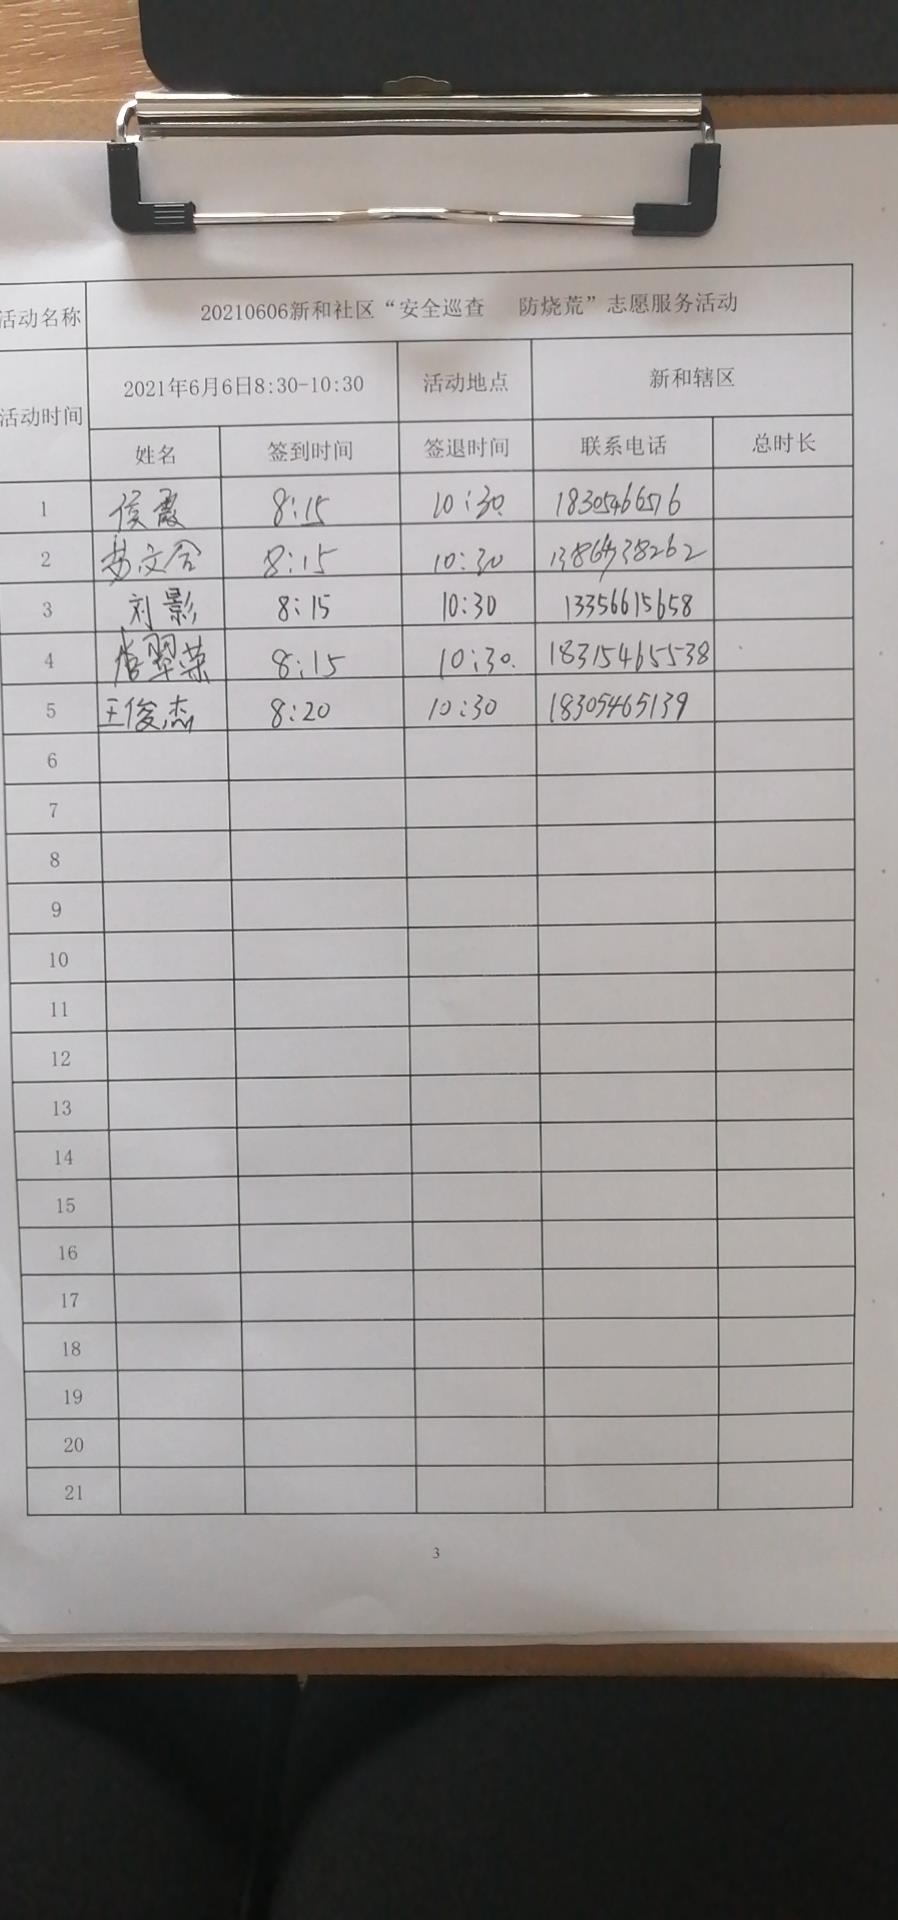 活动名称 20210606新和社区“安全巡查 防烧荒”志愿服务活动
活动时间 2021年6月6日8:30-10:30 活动地点 新和辖区
姓名 签到时间 签退时间 联系电话 总时长
1 侯霞 8:15 10:30 18305466516
2 8:15 10:30
3 刘影 8:15 10:30 13356615658
4 唐翠荣 8:15 10:30 18315465538
5 王俊杰 8:20 10:30 18305465139
6
7
8
9
10
11
12
13
14
15
16
17
18
19
20
21
3